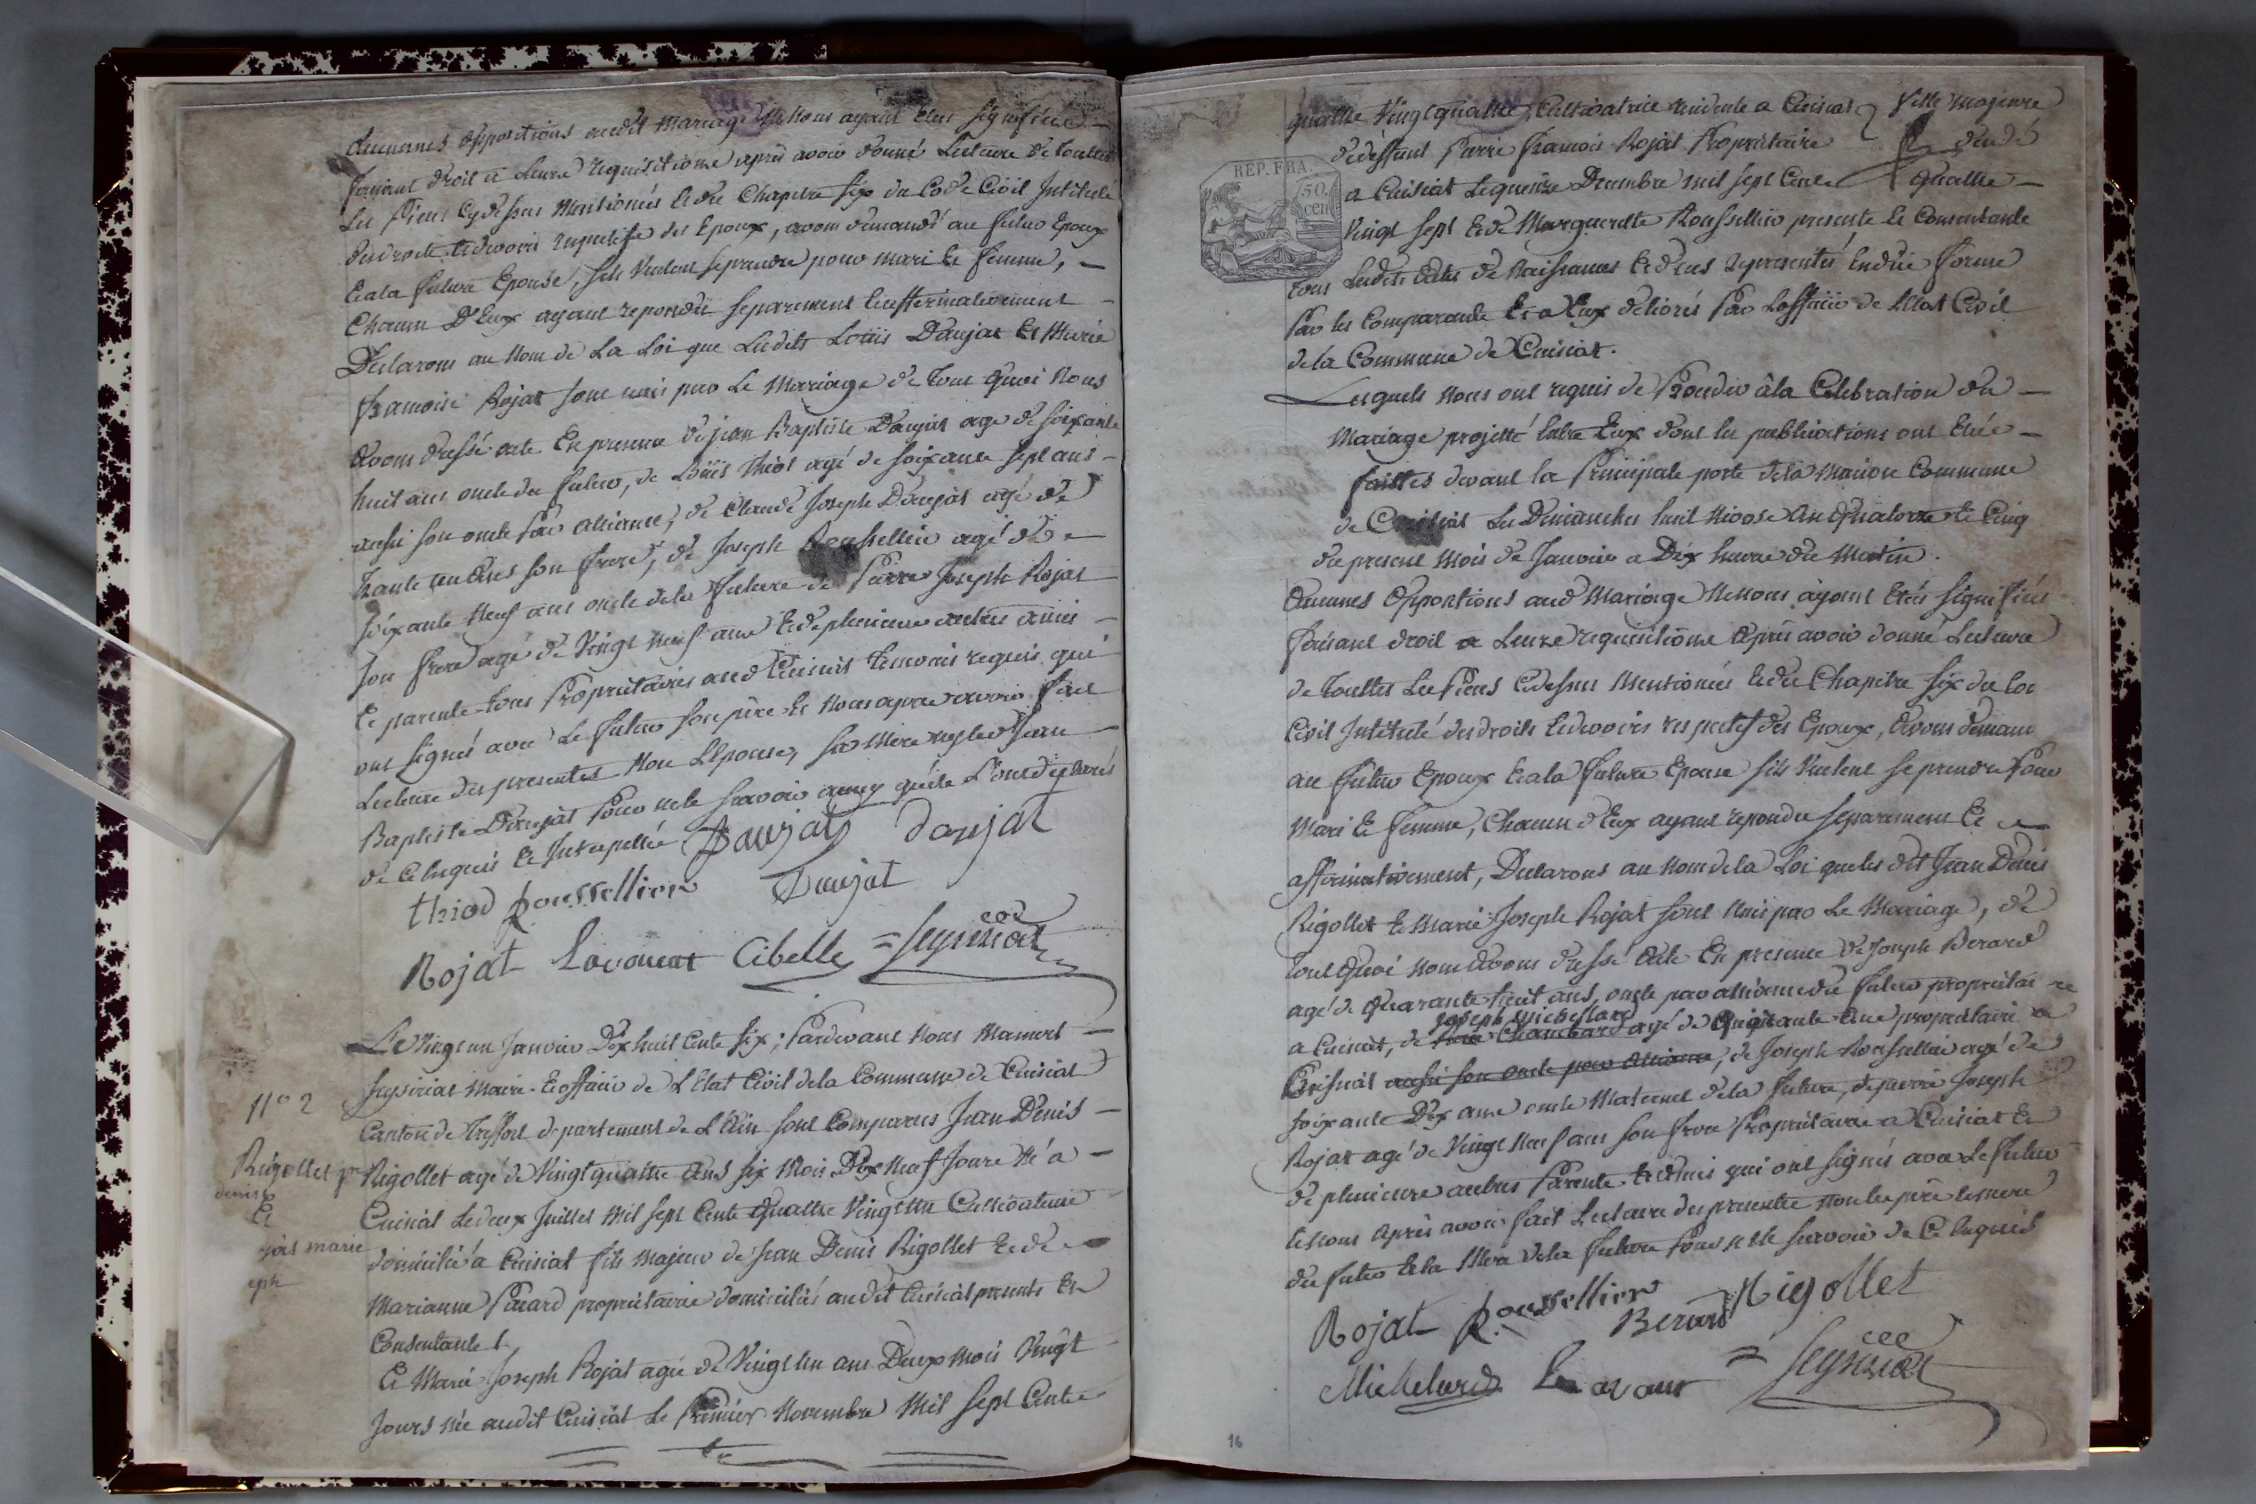 Aucunes oppositions audit Mariage Ne Nous ayant Etées signifiées
faisant droit à Leure requisitione après avoir donné Lecture de Touttes
Les pieces Cydessus Mentionnées Et du Chapitre six du Code Civil Intitulé
des droits Et devoirs respectifs des Epoux, avons demandé au futur Epoux
Et a la future Epouse, s'ils Veulent se prendre pour mari Et femme,
Chacun D'Eux ayant repondu separement Et affirmativement
Declarons au Nom de La Loi que Lesdits Louis Daujat Et Marie
françoise Rojat sont unis par Le Mariage de Tout Quoi Nous
Avons dressé acte En presence de jean Baptiste Daujat age de soixante
huit ans oncle du futur, de Louis thiod agé de soixante sept ans
aussi son oncle Par alliance, de Claude Joseph Daujat agé de
Trante son frere, de Joseph Roussellier agé de
soixante Neuf ans oncle de la future de Pierre Joseph Rojat
son frere agé de Vingt Neuf ans Et de plusieurs autres amis
Et parents tous Proprietaires aud Cuisiat temoins requis qui
ont signés avec Le futur son père Et Nous après avoir fait
Lecture des presentes Non L'Epouse, sa Mère Jean
Baptiste Daujat Pour ne le savoir
de Ce Enquis Et Interpellé Daujat Daujat
thiod Roussellier Daujat
Rojat Lavouent Cibelle = Seyssiat
Le Vingt un Janvier Dix huit Cents six; Pardevant Nous Mamert
Seyssiat Maire Et officier de L'Etat Civil de la Commune de Cuisiat
Canton de Treffort departement de L'Ain sont Comparus Jean Denis
N° 2
Rigollet agé de Vingt quatre Ans six Mois Dix Neuf Jours Né a
Rigollet
denis
Et
marie
eph
Cuisiat Le deux Juillet Mil sept Cents Quattre Vingt Un Cultivateur
domicilié a Cuisiat fils Majeur de Jean Denis Rigollet Et de
Marianne proprietaires domiciliés audit Cuisiat presents Et
Consentants
Et Marie Joseph Rojat agée de Vingt un ans Deux Mois Vingt
Jours née audit Cuisiat Le Premier Novembre Mil sept Cents
quattre Vingt quattre, Cultivatrice residente a Cuisiat fille Majeure
de deffunt Pierre françois Rojat Proprietaire decedé
a Cuisiat Le quinze Decembre mil sept Cents Quattre
REP. FRA.
50. cen
Vingt sept Et de Marguerite Roussellier presente Et Consentante
tous Lesdits Actes de Naissances Et deces representés En due forme
Par les Comparants Et a Eux delivrés Par L'officier de L'Etat Civil
de la Commune de Cuisiat.
Lesquels Nous ont requis de Procéder à la Celebration du
Mariage projetté Entre Eux dont les publications ont Etée
faittes devant la Principale porte de la Maison Commune
de Cuisiat Les Dimanches huit Nivose An Quatorze Et Cinq
du present Mois de Janvier a Dix heures du Matin.
Aucunes Oppositions aud Mariage Ne Nous ayant Etés signifiées
faisant droit a Leure requisitione après avoir donné Lecture
de Touttes Les Pieces Cidessus Mentionées Et du Chapitre six du Code
Civil Intitulé des droits Et devoirs respectifs des Epoux, Avons demandé
au futur Epoux Et a la future Epouse s'ils Veulent se prendre Pour
Mari Et femme, Chacun d'Eux ayant repondu separement Et
affirmativement, Declarons au Nom de la Loi que les dit Jean Denis
Rigollet Et Marie Joseph Rojat sont Unis par Le Mariage, de
tout Quoi Nous Avons dressé Acte En presence de Joseph Berard
agé de Quarante huit ans, oncle par alliance du futur proprietaire
Joseph Michellard
a Cuisiat, de Chambard agé de Cinquante Ans proprietaire a
Cuisiat aussi son oncle par Alliance, de Joseph Roussellier agé de
soixante Dix ans oncle Maternel de la future, de pierre Joseph
Rojat agé de Vingt Neuf ans son frere Proprietaire a Cuisiat Et
de plusieurs autres Parents Et Amis qui ont signés avec Le futur
Et Nous Après avoir fait Lecture des presentes Non Les père Et mere
du futur Et la Mère de la future Pour ne le savoir de Ce Enquis
Rojat Roussellier Berard Rigollet
Michelard = Seyssiat
16